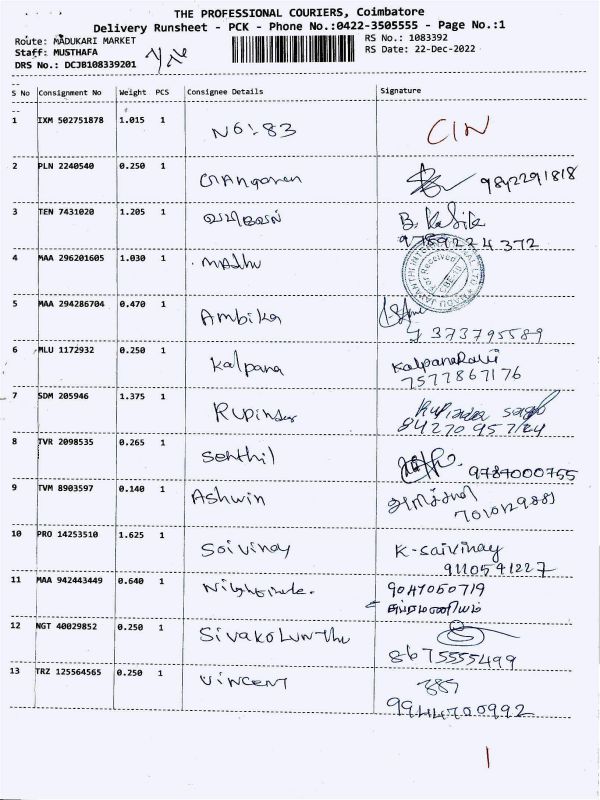 THE PROFESSIONAL COURIERS, Coimbatore
Delivery Runsheet - PCK - Phone No.:0422-3505555 - Page No.:1
Route: MADUKARI MARKET
RS No.: 1083392
Staff: MUSTHAFA
RS Date: 22-Dec-2022
DRS No.: DCJB108339201
S No Consignment No Weight PCS Consignee Details Signature
1 IXM 502751878 1.015 1 CIN
2 PLN 2240540 0.250 1 9842291818
3 TEN 7431020 1.205 1 B. Kasik
9789224372
4 MAA 296201605 1.030 1 Madhu
5 MAA 294286704 0.470 1 Ambika
7373795589
6 MLU 1172932 0.250 1 Kalpana
7577867176
7 SDM 205946 1.375 1 Rupinder
8 TVR 2098535 0.265 1 Senthil 9787000755
9 TVM 8903597 0.140 1 Ashwin
10 PRO 14253510 1.625 1 Saivinay K-Saivinay
9110541227
11 MAA 942443449 0.640 1 9047050719
12 NGT 40029852 0.250 1 Sivakolunthu
8675555499
13 TRZ 125564565 0.250 1 Vincent
9944700992